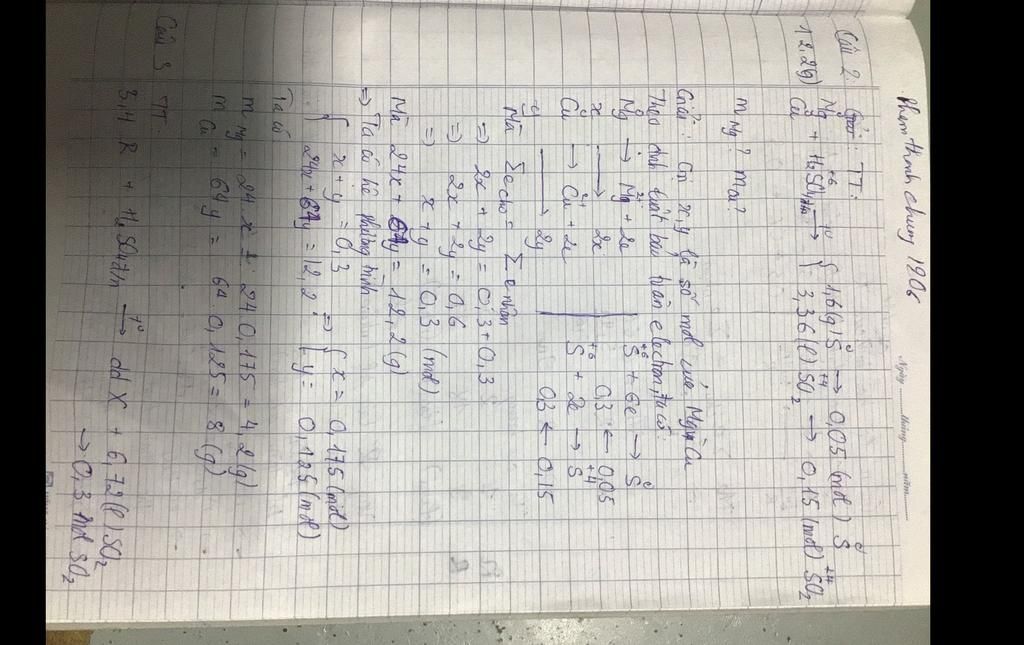 Phạm Thành Chung 1206
Ngày ...... tháng ...... năm ......
Câu 2: Giải: TT:
12,2(g) { Mg Cu + H₂SO₄ đặc t° → { 1,6(g) S → 0,05 (mol) S
3,36(l) SO₂ → 0,15 (mol) SO₂
m Mg? mCu?
Giải: Gọi x, y là số mol của Mg, Cu
Theo định luật bảo toàn electron, ta có:
Mg → Mg²⁺ + 2e | S⁺⁶ + 6e → S⁰
x → 2x | 0,3 ← 0,05
Cu → Cu²⁺ + 2e | S⁺⁶ + 2e → S⁺⁴
y → 2y | 0,3 ← 0,15
Mà Σe cho = Σe nhận
⇒ 2x + 2y = 0,3 + 0,3
⇒ 2x + 2y = 0,6
⇒ x + y = 0,3 (mol)
Mà 24x + 64y = 12,2(g)
⇒ Ta có hệ phương trình:
{ x + y = 0,3 ⇒ { x = 0,175 (mol)
24x + 64y = 12,2 y = 0,125 (mol)
Ta có
m Mg = 24 x = 24 0,175 = 4,2(g)
m Cu = 64y = 64 0,125 = 8 (g)
Câu 3 TT:
3,4 R + H₂SO₄ t° → dd X + 6,72(l) SO₂
→ 0,3 mol SO₂